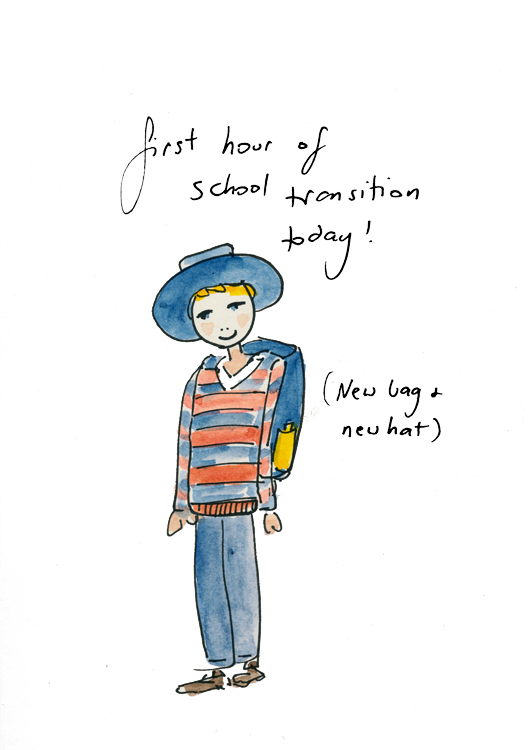 first hour of
school transition
today!
(New bag &
new hat)